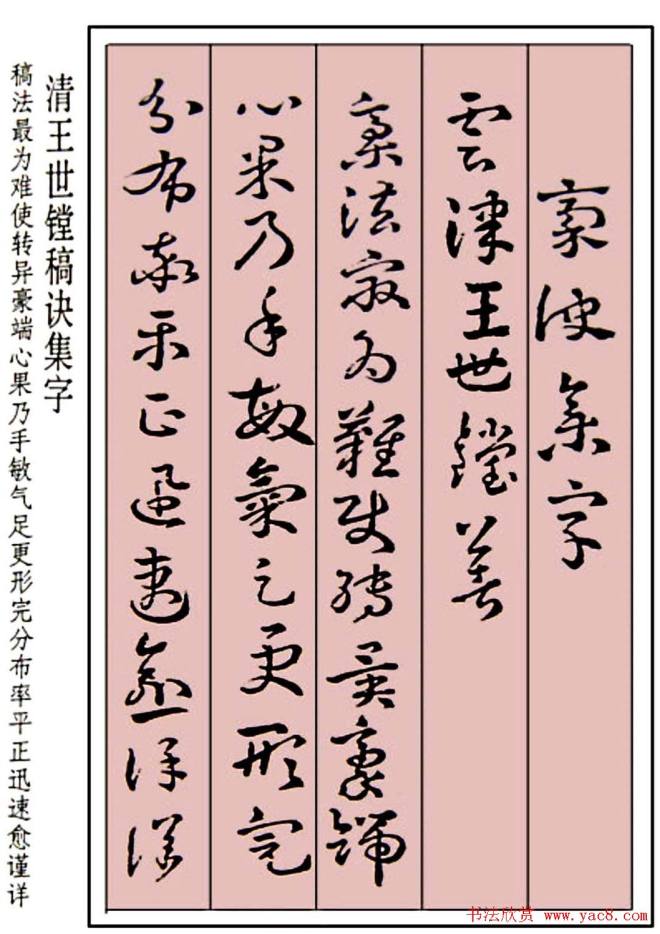 稾诀集字
云津王世镗著
稾法最为難使转異豪端
心果乃手敏氣足更形完
分布率平正迅速愈谨详
清王世镗稿诀集字
稿法最为难使转异豪端心果乃手敏气足更形完分布率平正迅速愈谨详
书法欣赏 www.yac8.com